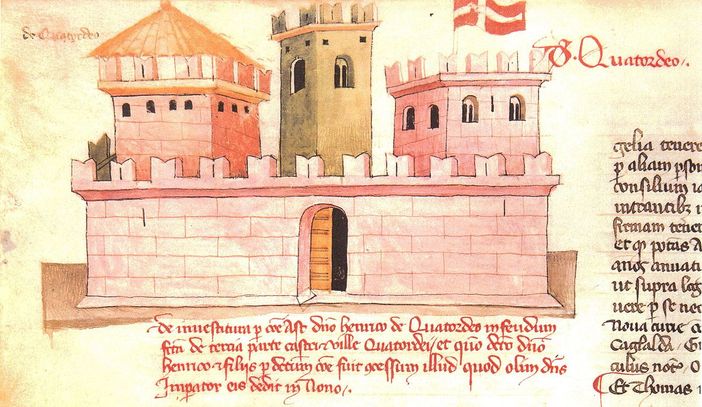 de Quatordeo
D. Quatordeo.
De inuestitura p cõe Ast dño henrico de Quatordeo in feudum
fcm de tercia parte castri & ville Quatordei, et quõ dcto dño
henrico & filijs p dictum cõe fuit ɔcessum illud quod olim dñs
Imperator eis dedit in Nono.
gelia tenere
p aliam pson
consilium
intrantibz
firmam tener
et q potas A
anos anuati
ut supra
uere p se nec
Noua curie
Caglalda
culus noto
Et Thomas